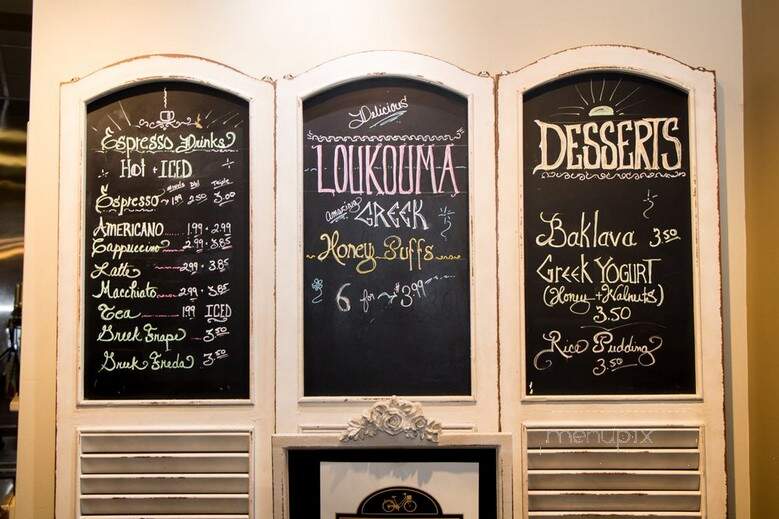 Espresso Drinks
Hot + ICED
Single Dbl Triple
Espresso 1.99 2.50 3.00
AMERICANO.... 1.99 - 2.99
Cappuccino.... 2.99 - 3.85
Latte 2.99 - 3.85
Macchiato.... 2.99 - 3.85
Tea.... 1.99 ICED
Greek Frape 3.50
Greek Freda 3.50
Delicious
LOUKOUMA
Amazing GREEK
Honey Puffs
6 for $3.99
DESSERTS
Baklava 3.50
GreeK YOGURT
(Honey + Walnuts)
3.50
Rice Pudding
3.50
menupix